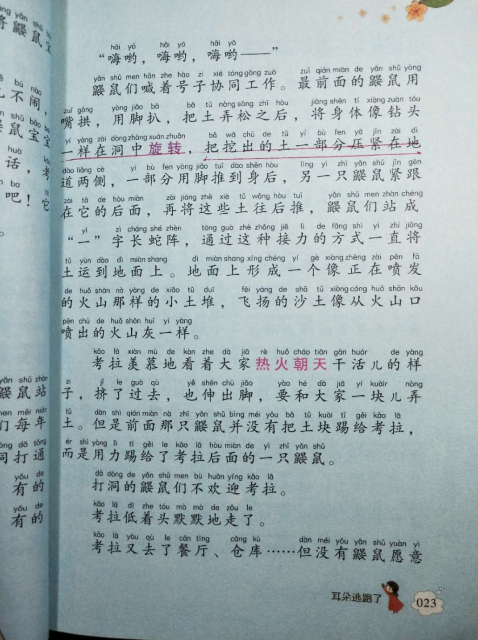 “嗨哟，嗨哟，嗨哟——”
鼹鼠们喊着号子协同工作。最前面的鼹鼠用
嘴拱，用脚扒，把土弄松之后，将身体像钻头
一样在洞中旋转，把挖出的土一部分压紧在地
道两侧，一部分用脚推到身后，另一只鼹鼠紧跟
在它的后面，再将这些土往后推，鼹鼠们站成
“一”字长蛇阵，通过这种接力的方式一直将
土运到地面上。地面上形成一个像正在喷发
的火山那样的小土堆，飞扬的沙土像从火山口
喷出的火山灰一样。
考拉羡慕地看着大家热火朝天干活儿的样
子，挤了过去，也伸出脚，要和大家一块儿弄
土。但是前面那只鼹鼠并没有把土块踢给考拉，
而是用力踢给了考拉后面的一只鼹鼠。
打洞的鼹鼠们不欢迎考拉。
考拉低着头默默地走了。
考拉又去了餐厅、仓库……但没有鼹鼠愿意
耳朵逃跑了
023
将鼹鼠宝
不闹，
鼹鼠宝宝
话，考
吧！它
鼹鼠站
们每年
同打通
有的
有的